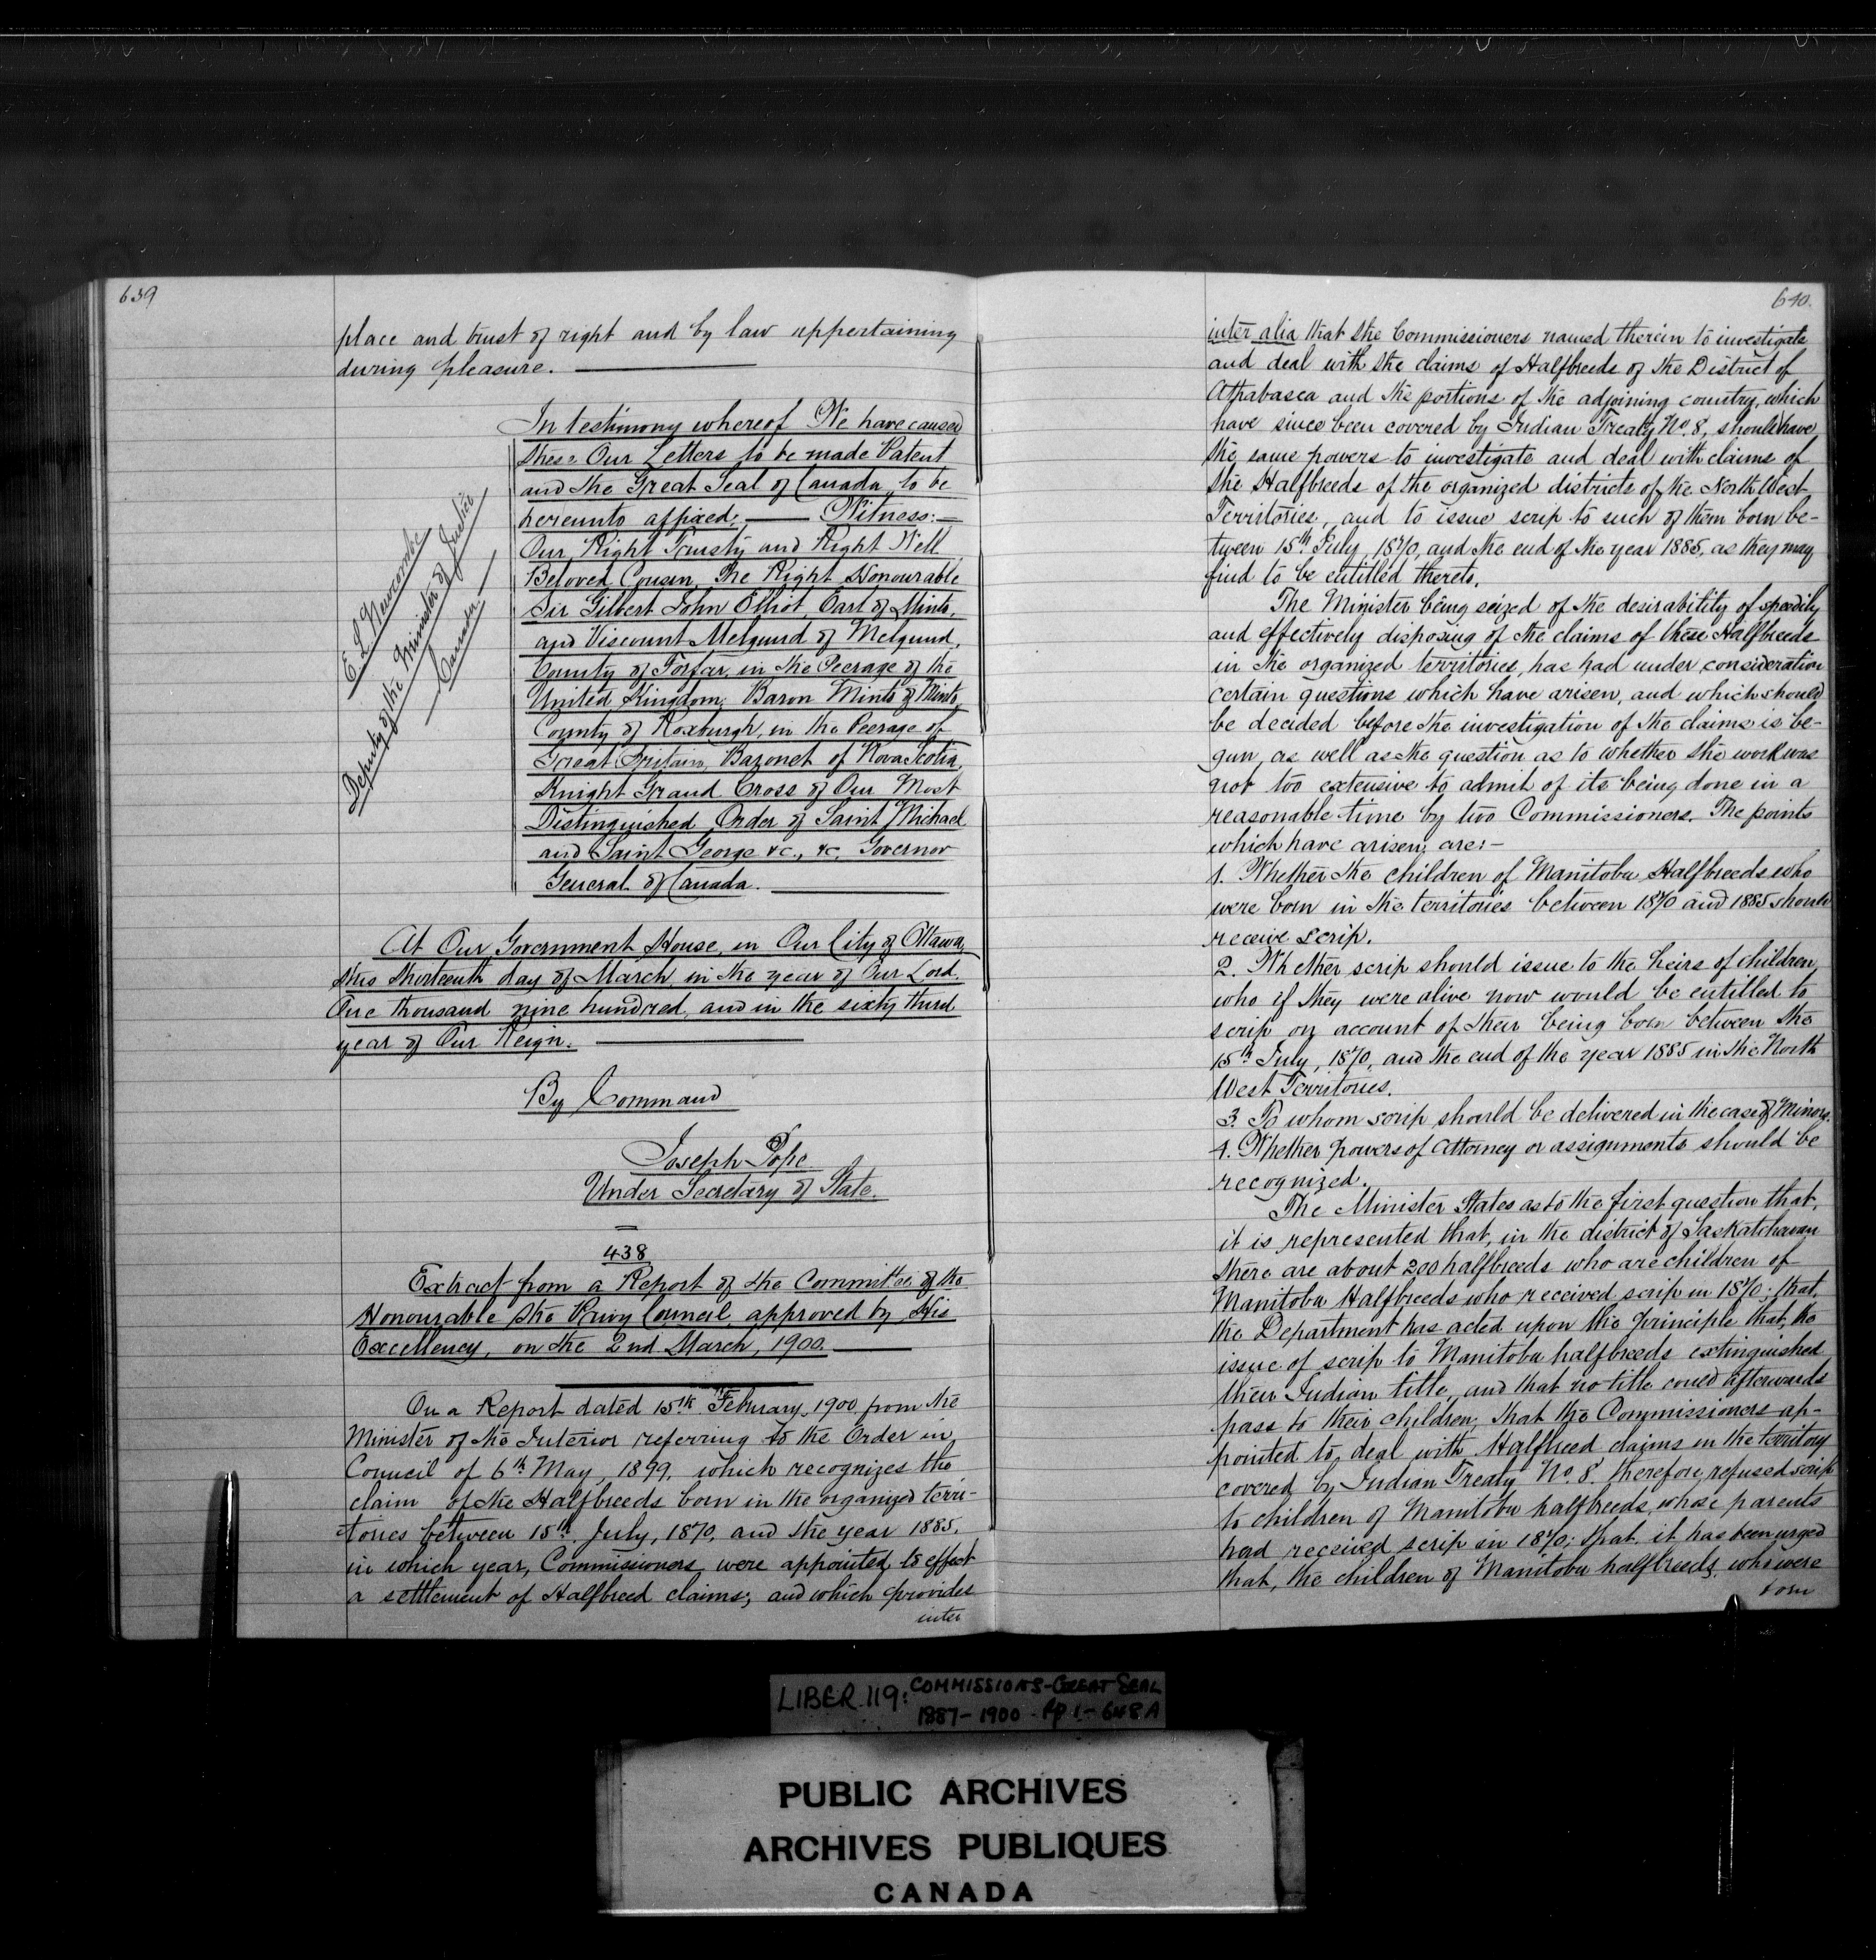 639
place and trust of right and by law appertaining
during pleasure.
In testimony whereof We have caused
these Our Letters to be made Patent
and the Great Seal of Canada to be
hereunto affixed; Witness:
Our Right Trusty and Right Well
Beloved Cousin, The Right Honourable
Sir Gilbert John Elliot, Earl of Minto,
and Viscount Melgund of Melgund,
County of Forfar, in the Peerage of the
United Kingdom, Baron Minto of Minto,
County of Roxburgh, in the Peerage of
Great Britain, Baronet of Nova Scotia,
Knight Grand Cross of Our Most
Distinguished Order of Saint Michael
and Saint George &c., &c. Governor
General of Canada.
E L Newcombe
Deputy of the Minister of Justice
Canada
At Our Government House, in Our City of Ottawa,
this thirteenth day of March, in the year of Our Lord,
One thousand nine hundred, and in the sixty third
year of Our Reign.
By Command
Joseph Pope
Under Secretary of State.
438
Extract from a Report of the Committee of the
Honourable the Privy Council, approved by His
Excellency, on the 2nd March, 1900.
On a Report dated 15th February, 1900 from the
Minister of the Interior referring to the Order in
Council of 6th May, 1899, which recognizes the
claim of the Halfbreeds born in the organized terri-
tories between 15th July, 1870, and the year 1885,
in which year, Commissioners were appointed to effect
a settlement of Halfbreed claims; and which provides
inter
640.
inter alia that the Commissioners named therein to investigate
and deal with the claims of Halfbreeds of the District of
Athabasca and the portions of the adjoining country, which
have since been covered by Indian Treaty No. 8, should have
the same powers to investigate and deal with claims of
the Halfbreeds of the organized districts of the North West
Territories, and to issue scrip to such of them born be-
tween 15th July, 1870, and the end of the year 1885, as they may
find to be entitled thereto.
The Minister being seized of the desirability of speedily
and effectively disposing of the claims of these Halfbreeds
in the organized territories, has had under consideration
certain questions which have arisen, and which should
be decided before the investigation of the claims is be-
gun, as well as the question as to whether the work was
not too extensive to admit of its being done in a
reasonable time by two Commissioners. The points
which have arisen; are:-
1. Whether the children of Manitoba Halfbreeds who
were born in the territories between 1870 and 1885 should
receive scrip.
2. Whether scrip should issue to the heirs of children
who if they were alive now would be entitled to
scrip on account of their being born between the
15th July, 1870, and the end of the year 1885 in the North
West Territories.
3. To whom scrip should be delivered in the case of Minors.
4. Whether Powers of Attorney or assignments should be
recognized.
The Minister States as to the first question that,
it is represented that, in the district of Saskatchewan
there are about 200 halfbreeds who are children of
Manitoba Halfbreeds who received scrip in 1870; that,
the Department has acted upon the principle that, the
issue of scrip to Manitoba halfbreeds extinguished
their Indian title, and that no title could afterwards
pass to their children; that the Commissioners ap-
pointed to deal with Halfbreed claims in the territory
covered by Indian Treaty No. 8, therefore, refused scrip
to children of Manitoba halfbreeds, whose parents
had received scrip in 1870; that, it has been urged
that, the children of Manitoba halfbreeds, who were
born
LIBER 119: COMMISSIONS-GREAT SEAL
1887-1900 - Pp 1-648A
PUBLIC ARCHIVES
ARCHIVES PUBLIQUES
CANADA